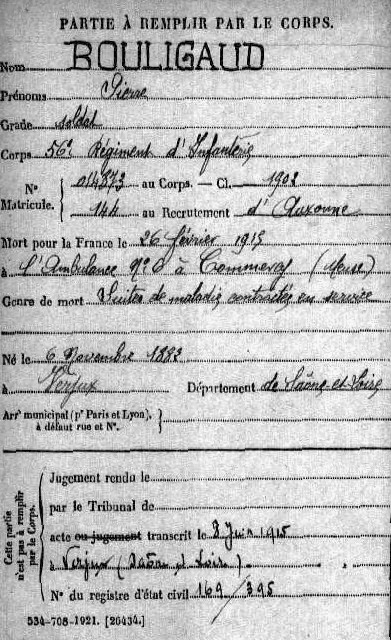 PARTIE À REMPLIR PAR LE CORPS.
Nom BOULIGAUD
Prénoms Pierre
Grade soldat
Corps 56e Régiment d'Infanterie
N° Matricule. 014873 au Corps. — Cl. 1903
144 au Recrutement d'Auxonne
Mort pour la France le 26 février 1915
à l'Ambulance n° 8 à Commercy (Meuse)
Genre de mort Suites de maladie contractée en service
Né le 6 Novembre 1883
à Verjux Département de Saône-et-Loire
Arr^t municipal (p^r Paris et Lyon), à défaut rue et N°.
Cette partie n'est pas à remplir par le Corps.
Jugement rendu le
par le Tribunal de
acte ou jugement transcrit le 8 Juin 1915
à Verjux (Saône et Loire)
N° du registre d'état civil 169/395
534-708-1921. [26434.]